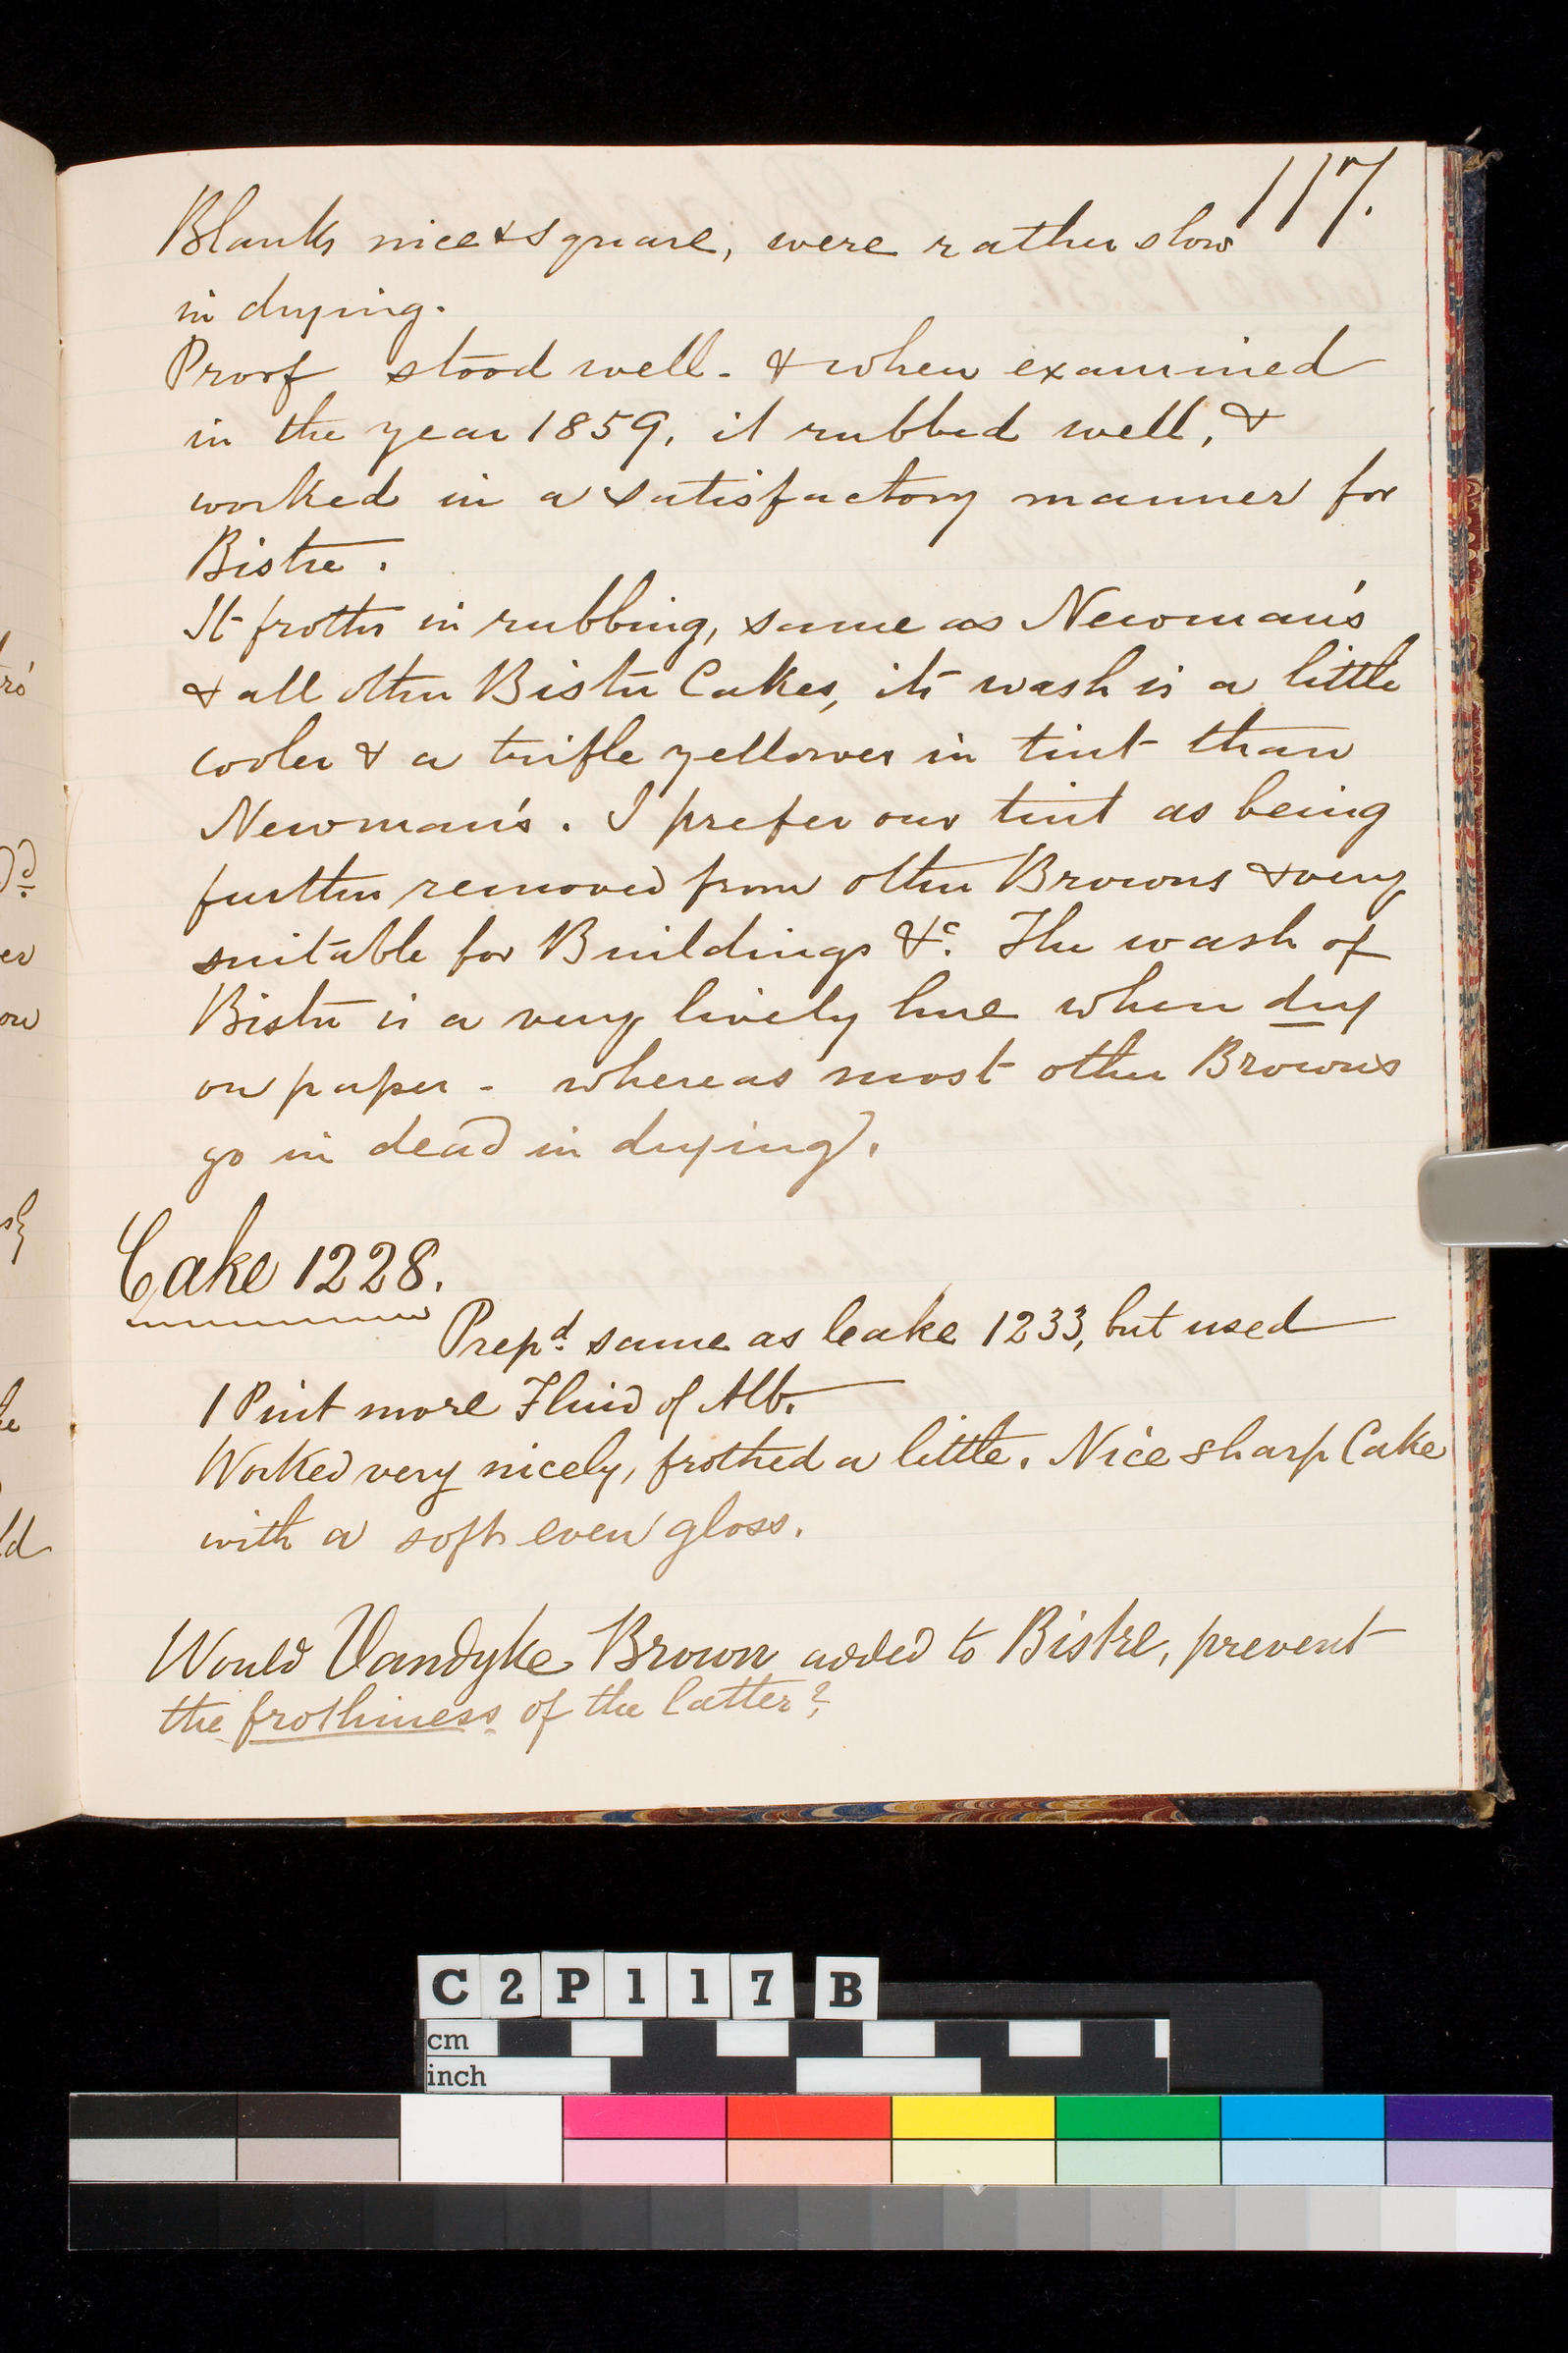 117.
Blanks nice & square, were rather slow
in drying.
Proof stood well - & when examined
in the year 1859, it rubbed well, &
worked in a satisfactory manner for
Bistre.
It froths in rubbing, same as Newman's
& all other Bistre Cakes, its wash is a little
cooler & a trifle yellower in tint than
Newman's. I prefer our tint as being
further removed from other Browns & very
suitable for Buildings &c. The wash of
Bistre is a very lively hue when dry
on paper - whereas most other Browns
go in dead in drying.
Cake 1228.
Prepd. same as Cake 1233, but used
1 Pint more Fluid of Alb.
Worked very nicely, frothed a little. Nice sharp Cake
with a soft even gloss.
Would Vandyke Brown added to Bistre, prevent
the frothiness of the latter?
C2P117 B
cm
inch